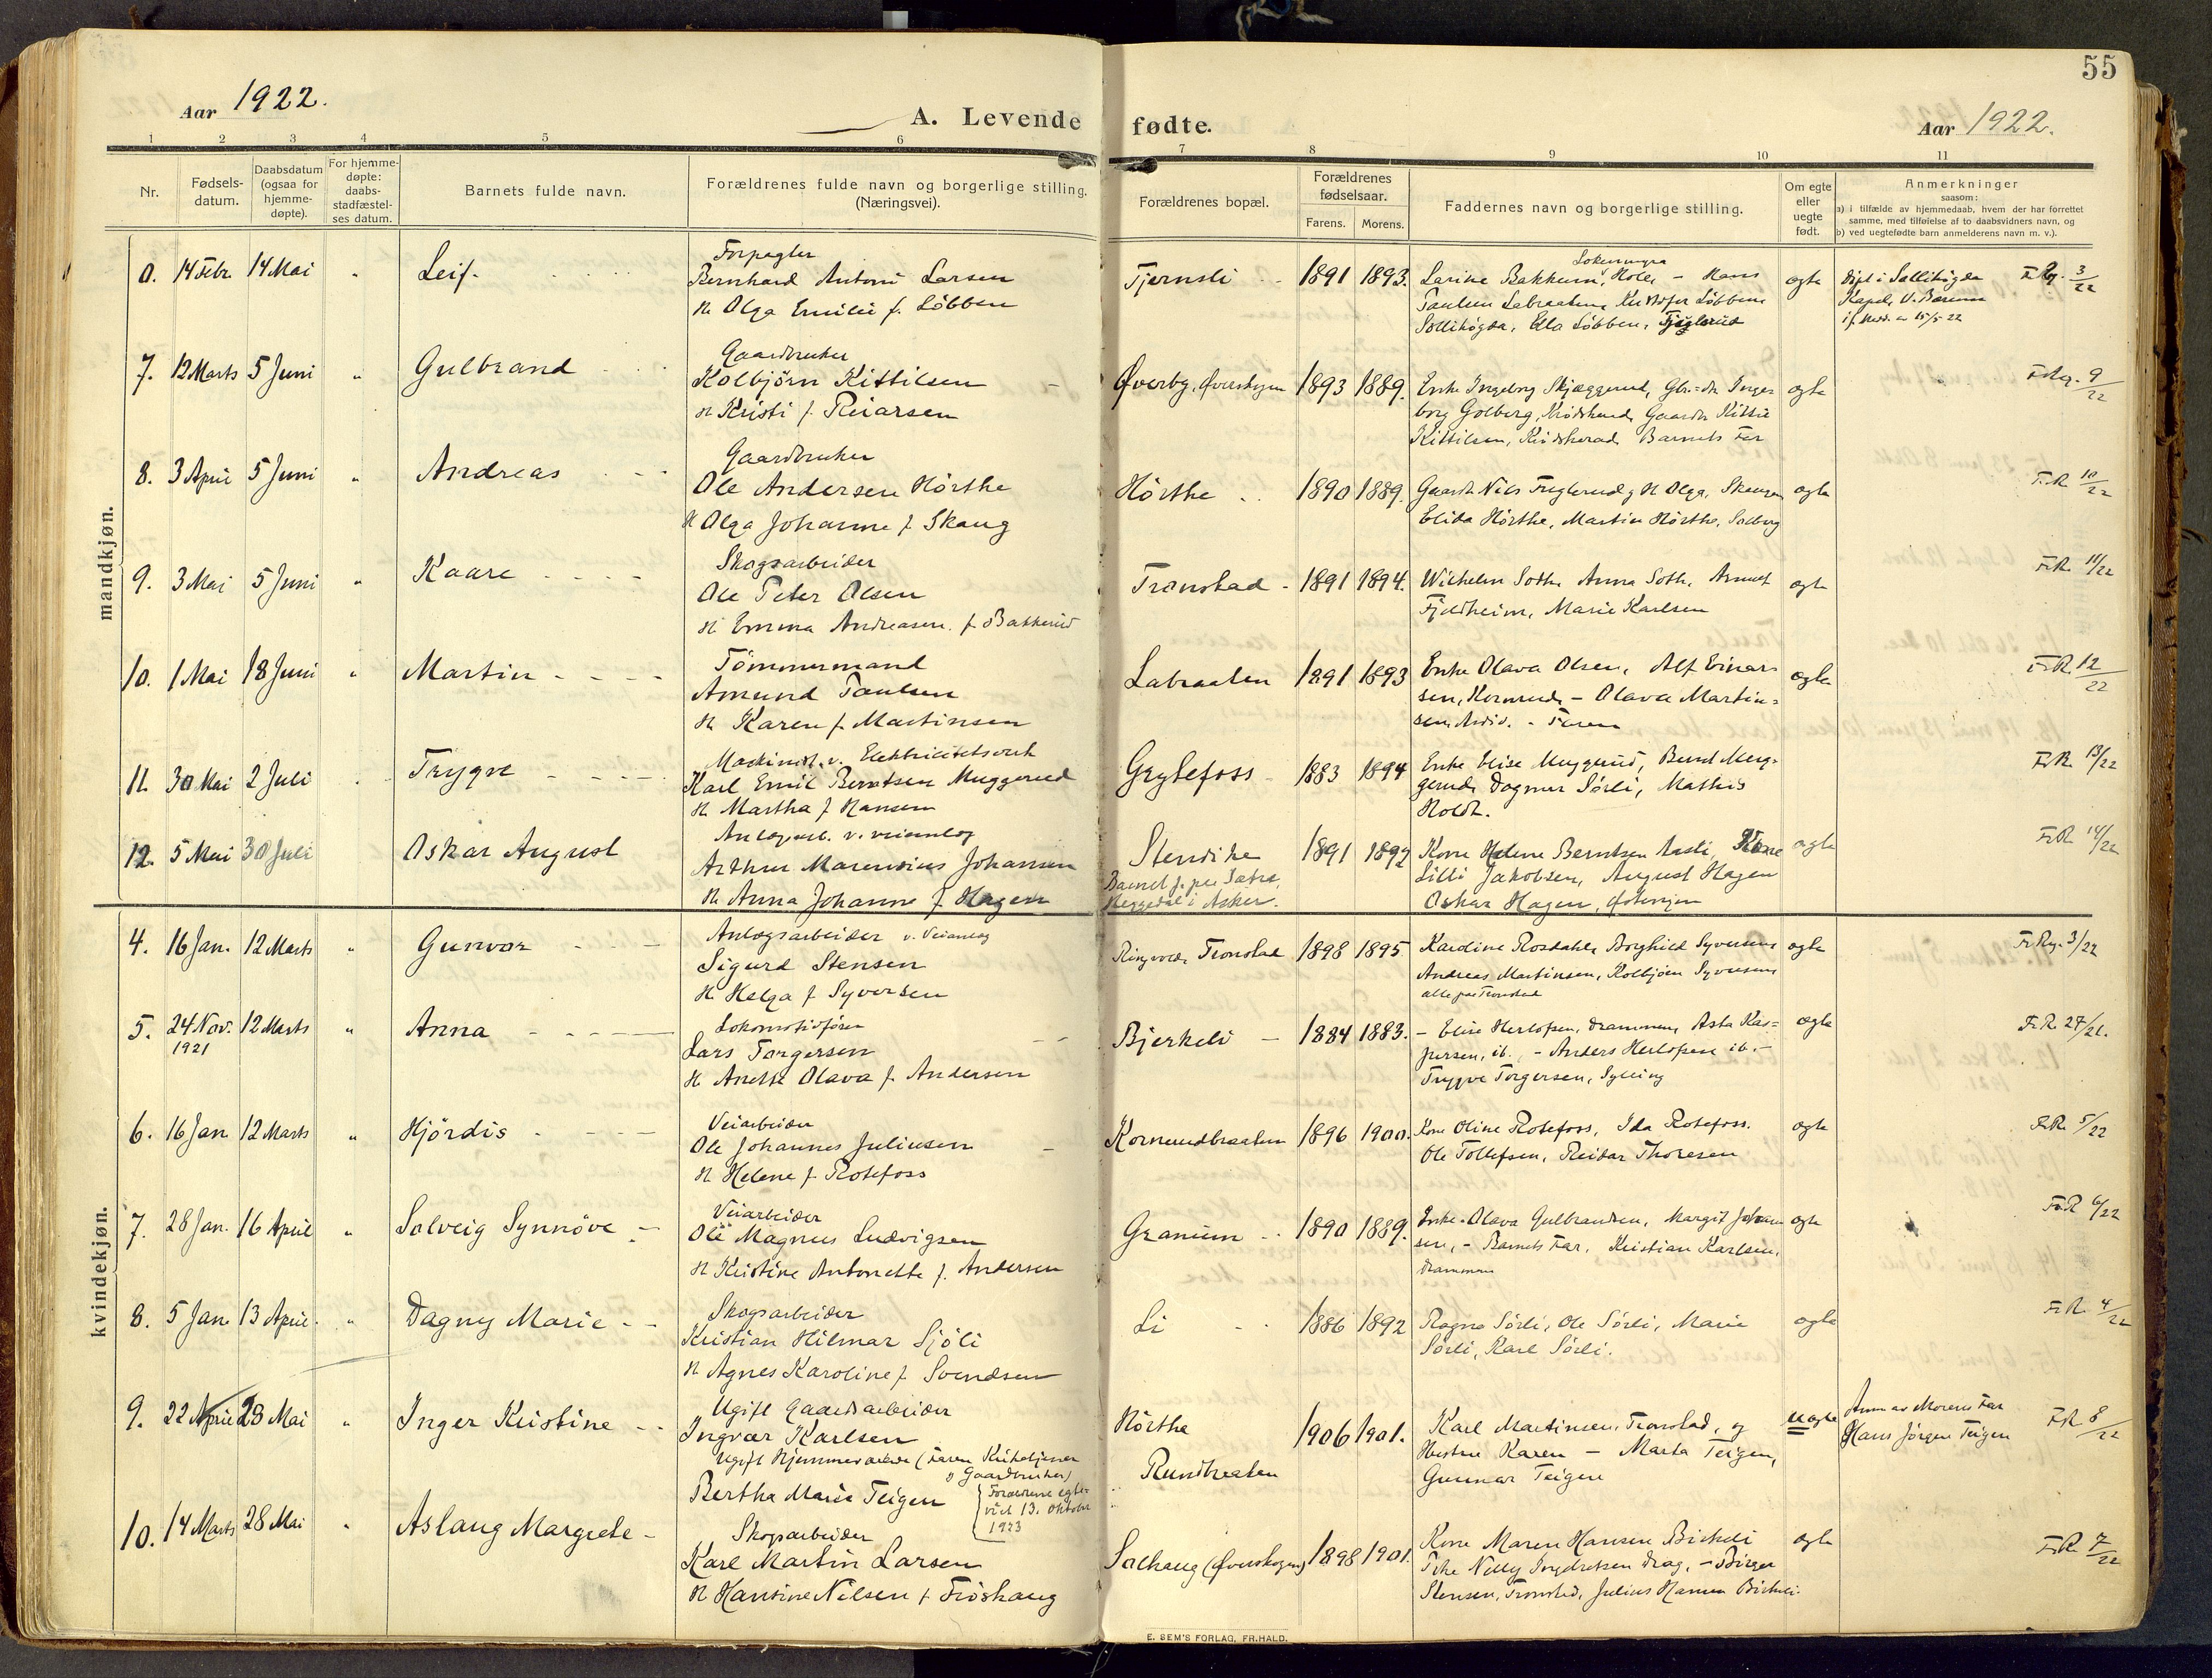 55
Aar 1922.
A. Levende fødte.
Aar 1922.
1 2 3 4 5 6 7 8 9 10 11
Nr.
Fødsels-
datum.
Daabsdatum
(ogsaa for
hjemme-
døpte).
For hjemme-
døpte:
daabs-
stadfæstel-
ses datum.
Barnets fulde navn.
Forældrenes fulde navn og borgerlige stilling.
(Næringsvei).
Forældrenes bopæl.
Forældrenes
fødselsaar.
Farens. Morens.
Faddernes navn og borgerlige stilling.
Om egte
eller
uegte
født.
Anmerkninger
saasom:
a) i tilfælde av hjemmedaab, hvem der har forrettet
samme, med tilføielse af to daabsvidners navn, og
b) ved uegtefødte barn anmelderens navn m. v.).
mandkjøn.
14 Febr 14 Mai " Leif
Forpagter
Bernhard Antoni Larsen
H. Olga Emilie f. Løbben
Tjernsli 1891 1893.
Larine Bakkum, Hole, - Hans
Paulsen Labraaten, Kristofer Løbben
Sollihøgda, Ella Løbben,
egte
Døpt i Sollihøgda
Kapel, V. Bærum
if. Medd. av 15/5 22
F.Rg. 3/22
7. 12 Marts 5 Juni " Gulbrand
Gaardbruker
Kolbjørn Kittilsen
H Kristi f. Reiarsen
Øverby, Øverskogen 1893 1889.
Enke Ingeborg Skjæggerud, Gbr.=dtr Inge-
borg Golberg, Krødsherad, Gaardbr Kittil
Kittilsen, Krødsherad Barnets Far
egte
F.Rg. 9/22
8. 3 April 5 Juni " Andreas
Gaardbruker
Ole Andersen Hörthe
H Olga Johanne f. Skaug
Hörthe 1890 1889.
Gaardbr Nils Fuglerud og H Olga, Skaugen
Elida Hörthe, Martin Hörthe, Solberg
egte
F.R. 10/22
9. 3 Mai 5 Juni " Kaare
Skogsarbeider
Ole Peter Olsen
H. Emma Andreasen f. Bakkerud
Tronstad 1891 1894.
Wilhelm Soth, Anna Soth, Arnust
Fjeldheim, Marie Karlsen
egte
F.R. 11/22
10. 1 Mai 18 Juni " Martin
Tömmermand
Amund Paulsen
H. Karen f. Martinsen
Labraaten 1891 1893
Enke Olava Olsen, Alf Einar-
sen, Kornrud, - Olava Martin=
sen, - Faren
egte
F.R. 12/22
11. 30 Mai 2 Juli Trygve
Maskinist v. Elektricitetsverk
Karl Emil Berntsen Muggerud
H. Martha f Hansen
Grytefoss 1883 1894
Enke Elise Muggerud, Bernt Mug-
gerud, Dagmar Sörli, Mathis
Holdt.
F.R. 13/22
12. 5 Mai 30 Juli Oskar August
Anlegsarb. v. veianleg
Arthur Marensius Johansen
H. Anna Johanne f. Hagen
Stendike 1891 1892
Barnet f. paa Sætre,
Heggedal i Asker.
Kone Helene Berntsen Kone
Lilli Jakobsen, August Hagen
Oskar Hagen,
egte
F.R. 14/22
kvindekjøn.
4. 16 Jan. 12 Marts " Gunvor
Anlegsarbeider v. Veianleg
Sigurd Stensen
H. Helga f Syversen
Tronstad 1898 1895.
Karoline Rosdahl, Borghild Syversen,
Andreas Martinsen, Kolbjörn Syversen
alle paa Tronstad
egte
F.Rg. 3/22
5. 24 Nov. 12 Marts " Anna
1921
Lokomotivförer
Lars Torgersen
H. Anette Olava f. Andersen
Bjerkeli 1884 1883.
- Elise Herlofsen, Drammen, Asta Kas=
persen, ib., - Anders Herlofsen ib. -
Trygve Torgersen, Sylling
egte
F.R. 27/21.
6. 16 Jan 12 Marts " Hjördis
Veiarbeider
Ole Johannes Juliusen
H. Helene f Rotefoss
Kornrudbraaten 1896 1900.
Kone Oline Rotefoss, Ida Rotefoss.
Ole Tollefsen, Reidar Thoresen
egte
F.R. 5/22
7. 28 Jan. 16 April " Solveig Synnöve
Veiarbeider
Ole Magnus Ludvigsen
H Kristine Antonette f. Andersen
Granum 1890 1889.
Enke Olava Gulbrandsen, Margit Johan-
sen, - Barnets Far, Kristian Karlsen,
Drammen
egte
F.R 6/22
8. 5 Jan 13 April " Dagny Marie
Skogsarbeider
Kristian Hilmar Sjöli
H Agnes Karoline f. Svendsen
Li 1886 1892
Ragna Sörli, Ole Sörli, Marie
Sörli, Karl Sörli.
egte
F.R. 4/22
9. 22 April 23 Mai " Inger Kristine
Ugift Gaardsarbeider
Ingvar Karlsen
Ugift Hjemmeværende (Faren Kirketjener
og Gaardbruker)
Bertha Marie Teigen
Forældrene egte-
viet 13. Oktober
1923
Hörthe
Rundbraaten 1906 1901.
Karl Martinsen, Tronstad, og
Hustru Karen - Marta Teigen,
Gunnar Teigen
uegte
Anm av Morens Far
Hans Jörgen Teigen
F.R 8/22
10. 14 Marts 28 Mai " Aslaug Margrete
Skogsarbeider
Karl Martin Larsen
H Hansine Nilsen f Fröshaug
Solhaug (Øverskogen) 1898 1901.
Kone Maren Hansen Birkeli
Pike Nelly Drag, - Birger
Stensen, Tronstad, Julius Hansen Birkeli.
egte
F.R. 7/22
E. SEM'S FORLAG, FR.HALD.